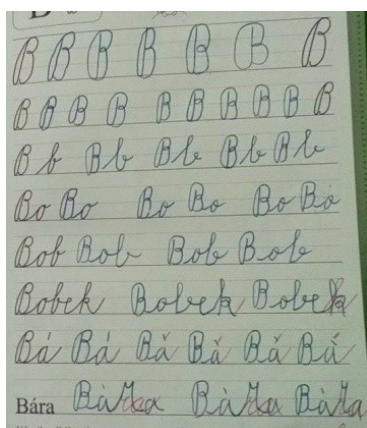 B B B B B B B
B B B B B B B B B B
B b B b B b B b B b
Bo Bo Bo Bo Bo Bo
Bob Bob Bob Bob
Bobek Bobek Bobek
Bá Bá Bǎ Bǎ Bǎ Bá
Bára